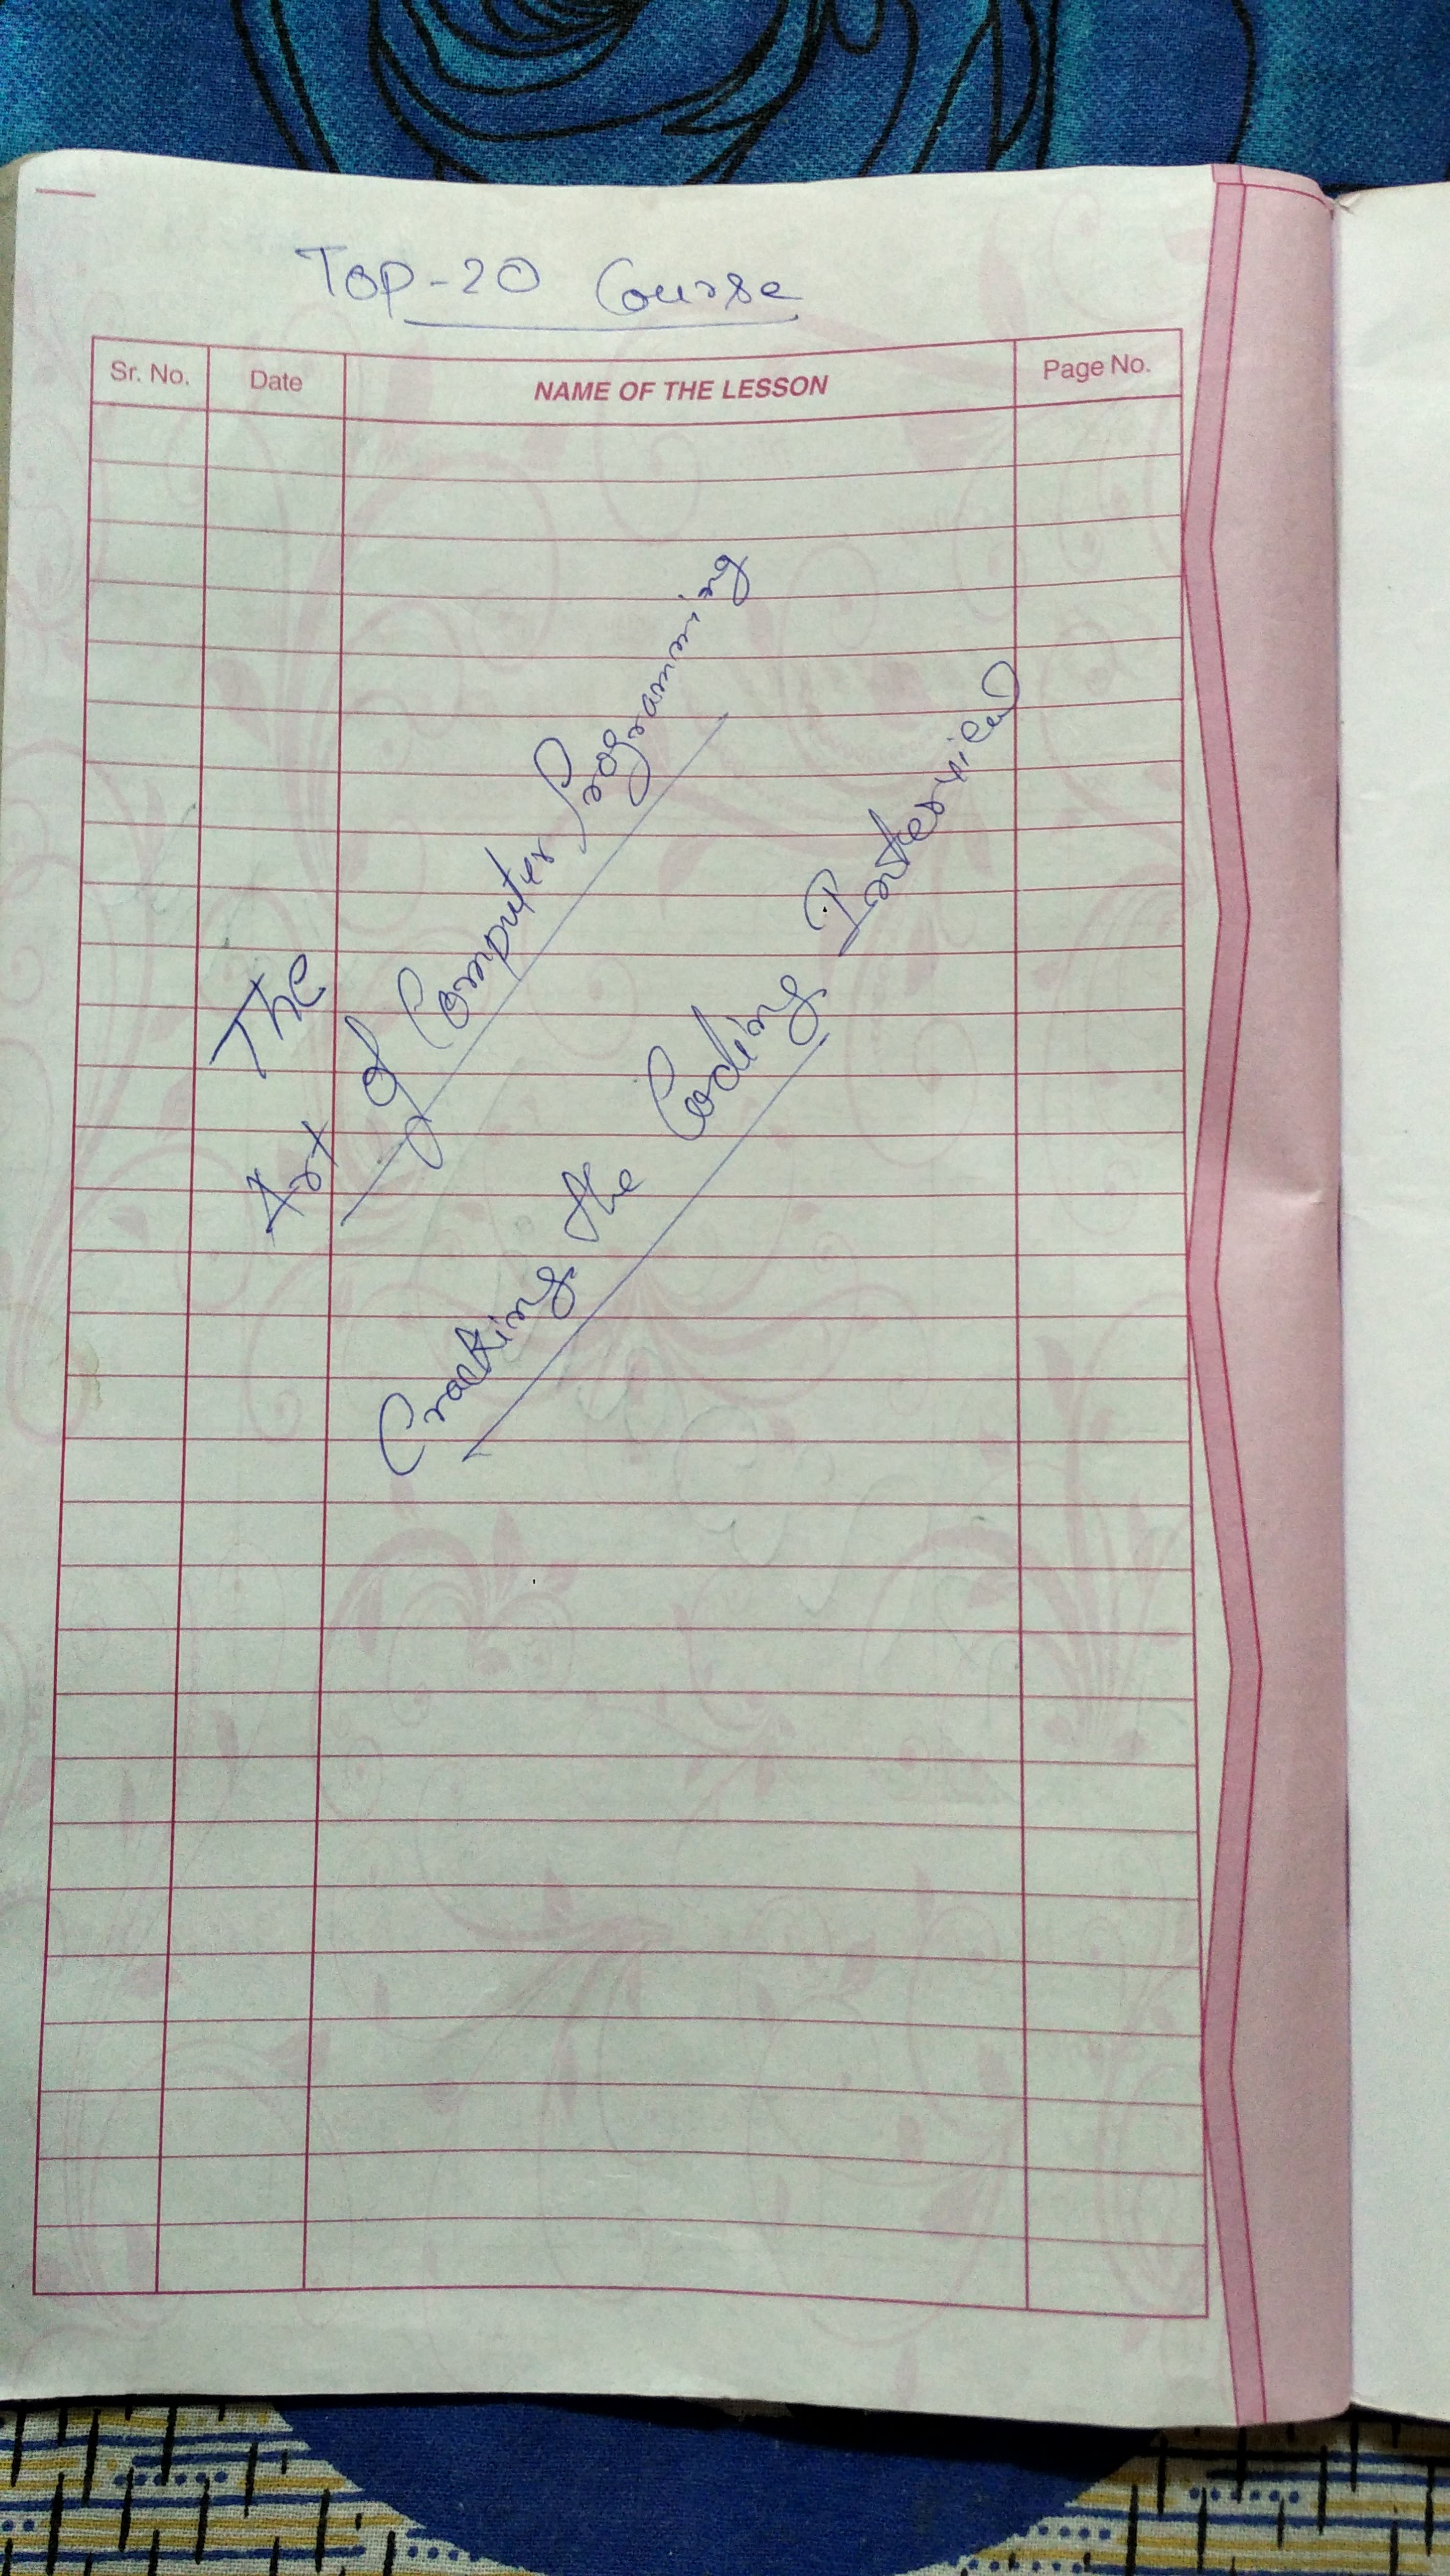 Top-20 Course
Sr. No. Date NAME OF THE LESSON Page No.
The
Art of Computer Programming
Cracking the Coding Interview